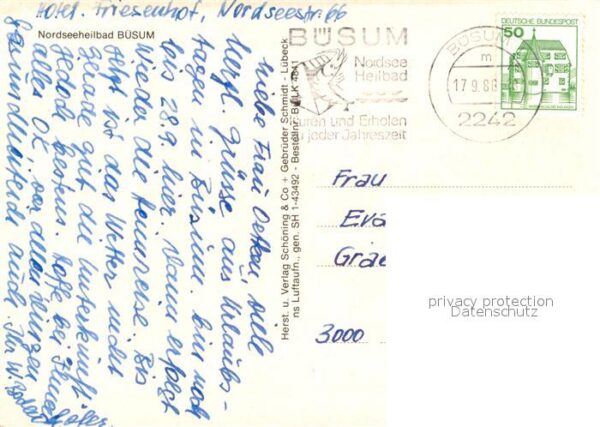 Hotel Friesenhof, Nordseestr. 66
Nordseeheilbad BÜSUM
Liebe Frau Oetken, viele
herzl. Grüsse aus Urlaubs-
tagen in Büsum. bin noch
bis 28.9. hier, dann erfolgt
wieder die Heimreise. Bis
jetzt ist das Wetter nicht
gerade gut, die Unterkunft
jedoch bestens. Hoffe, bei Ihnen
alles OK, vor allen Dingen
auch. Ihr W.
Herst. u. Verlag Schöning & Co + Gebrüder Schmidt - Lübeck
ns Luftaufn., gen. SH 1-43492 - Bestellnr. B
BÜSUM
Nordsee
Heilbad
Kuren und Erholen
zu jeder Jahreszeit
BÜSUM
m
17.9.80
2242
DEUTSCHE BUNDESPOST
50
Frau
Eva
Grae
3000
privacy protection
Datenschutz